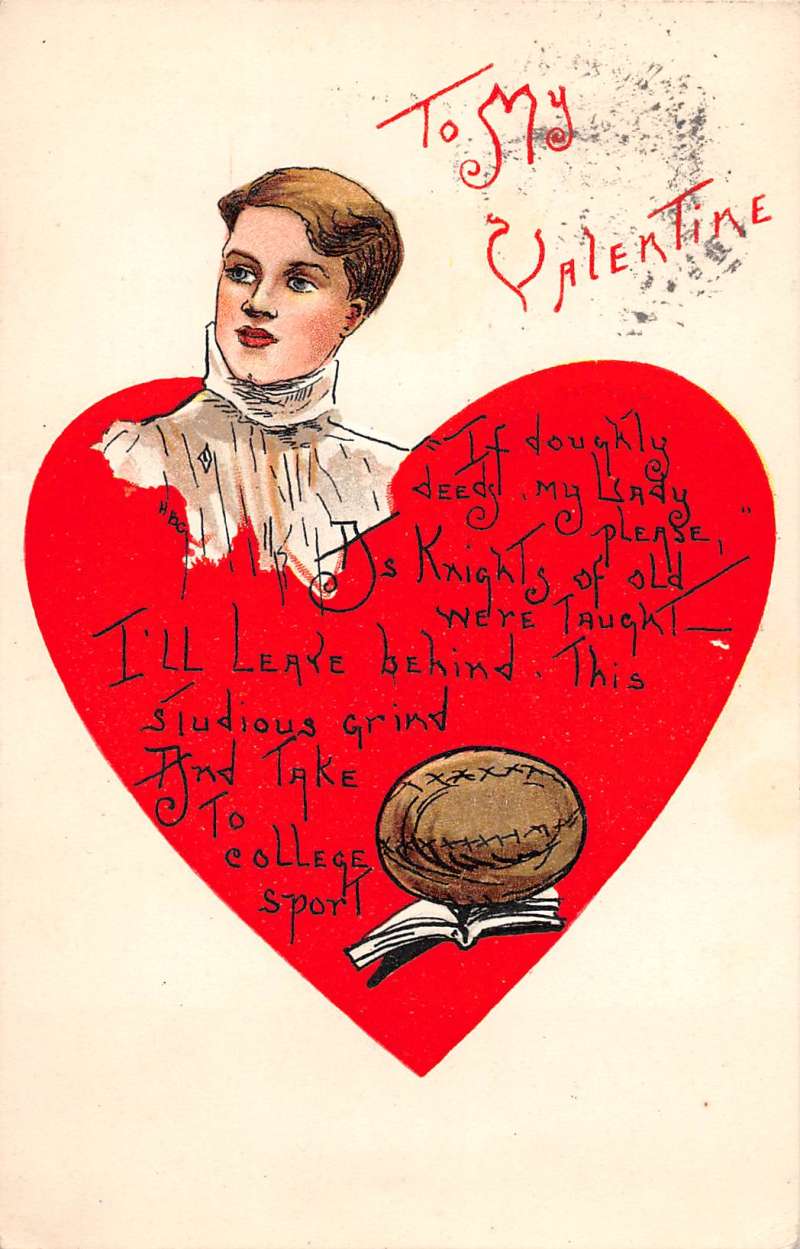 To My
Valentine
"If doughty
deeds my Lady
please,"
As Knights of old
were Taught—
I'll Leave behind. This
studious grind
And Take
To
college
sport
HBG